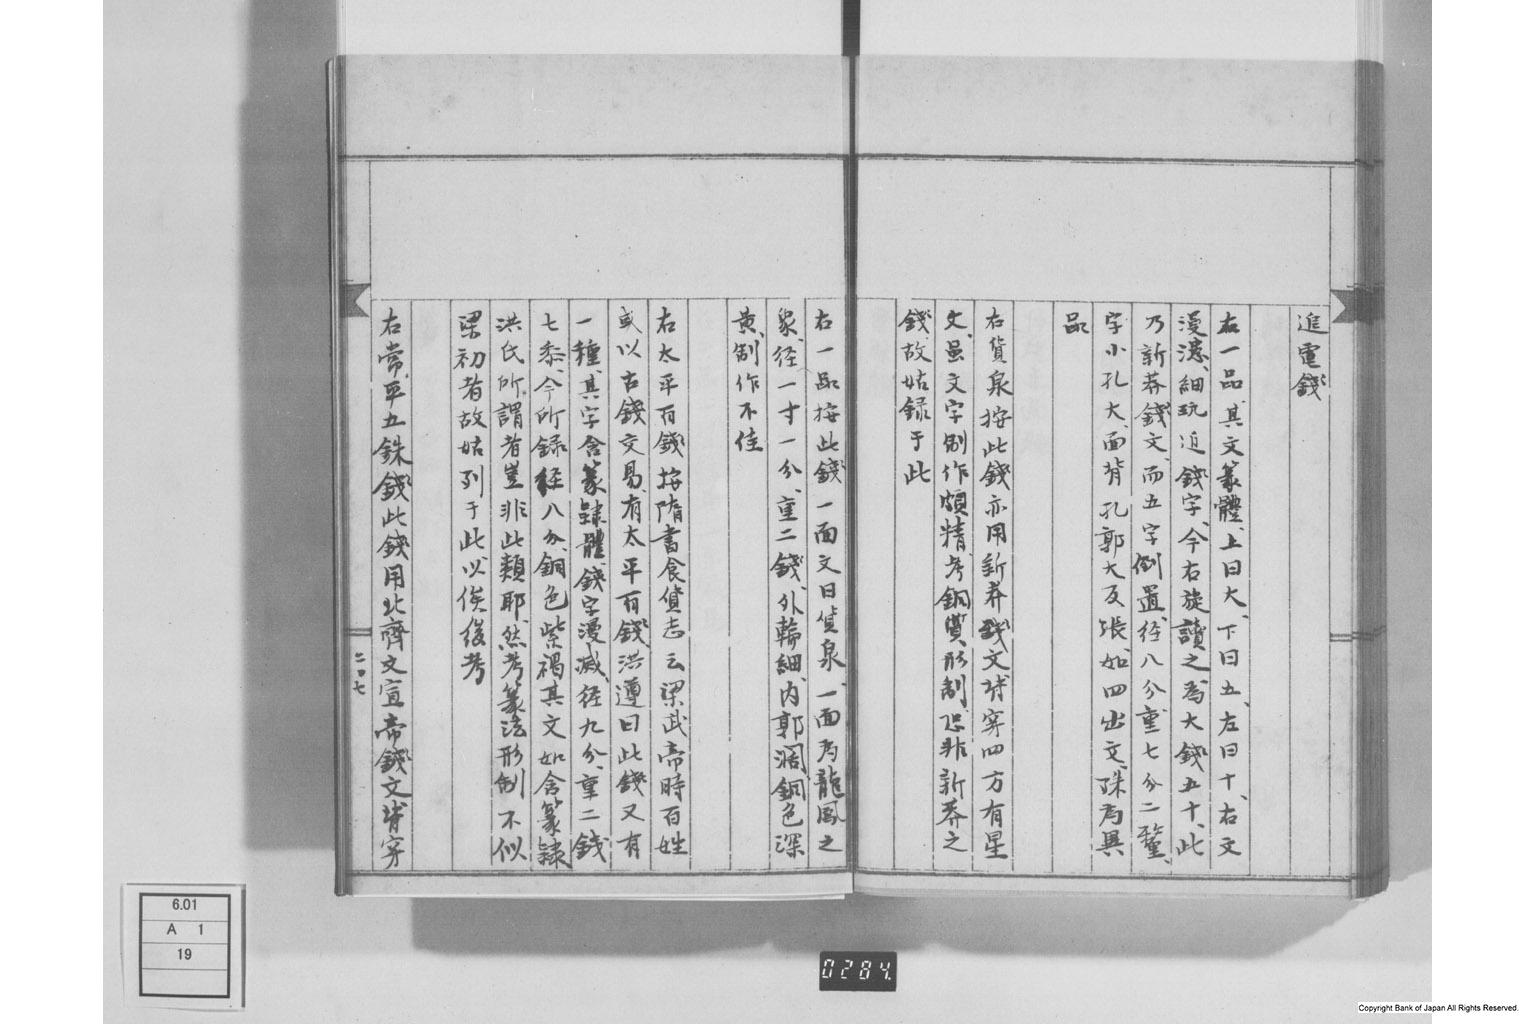 進電錢
右一品其文篆體、上曰大、下曰五、左曰十、右文
漫漶、細玩近錢字、今右旋讀之為大錢五十、此
乃新莽錢文、而五字倒置、径八分重七分二釐、
字小孔大、面背孔郭大反張、如四出文、殊為異
品
右貨泉按此錢亦用新莽錢文背穿四方有星
文、虽文字制作頗精、考銅質形制恐非新莽之
錢故姑録于此
右一品按此錢一面文曰貨泉、一面為龍鳳之
象、径一寸一分、重二錢、外輪細、内郭濶銅色深
黄、制作不佳
右太平百錢按隋書食貨志云梁武帝時百姓
或以古錢交易、有太平百錢、洪遵曰此錢又有
一種、其字含篆隷體、錢字漫滅、径九分、重二錢
七黍、今所録経八分、銅色紫褐其文如含篆隷
洪氏所謂者豈非此類耶、然考篆法形制不似
梁初者故姑列于此以俟後考
右常平五銖錢此錢用北齊文宣帝錢文背穿
二〇七
6.01
A 1
19
0284
Copyright Bank of Japan All Rights Reserved.